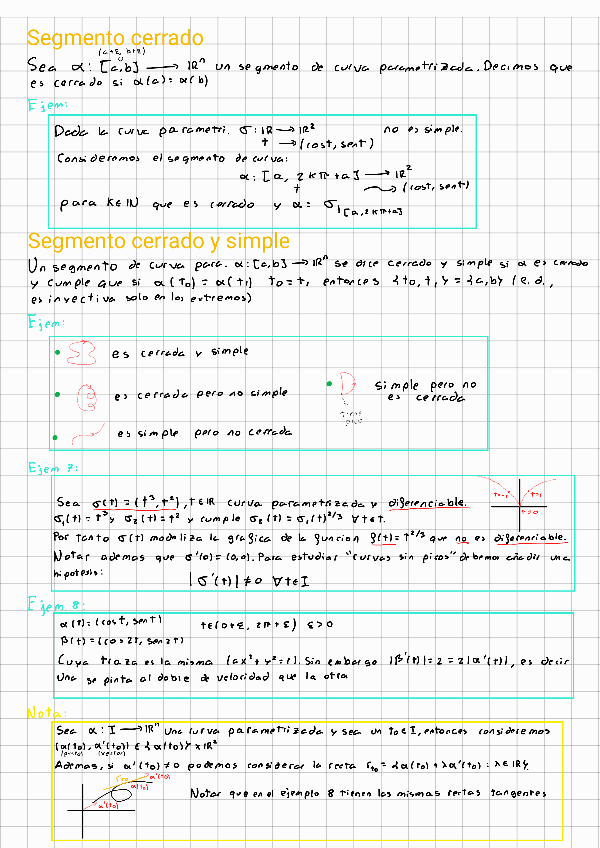 Segmento cerrado
(a-ε, b+ε)
Sea α: [a,b] → ℝⁿ un segmento de curva parametrizada. Decimos que
es cerrado si α(a) = α(b)
Ejem:
Dada la curva parametri. σ: ℝ → ℝ² no es simple.
t → (cost, sent)
Consideremos el segmento de curva:
α: [a, 2kπ+a] → ℝ²
t → (cost, sent)
para k∈ℕ que es cerrado y α: σ|[a,2kπ+a]
Segmento cerrado y simple
Un segmento de curva para. α: [a,b] → ℝⁿ se dice cerrado y simple si α es cerrado
y cumple que si α(t₀) = α(t₁) t₀ = t₁ entonces {t₀, t₁} = {a,b} (e.d.,
es inyectiva solo en los extremos)
Ejem:
es cerrada y simple
es cerrada pero no simple
simple pero no
es cerrada
es simple pero no cerrada
Ejem 7:
Sea σ(t) = (t³, t²), t∈ℝ curva parametrizada y diferenciable.
σ₁(t) = t³ y σ₂(t) = t² y cumple σ₂(t) = σ₁(t)^2/3 ∀t∈ℝ.
t>0
Por tanto σ(t) modeliza la grafica de la funcion f(t) = t^2/3 que no es diferenciable.
Notar ademas que σ'(0) = (0,0). Para estudiar "curvas sin picos" debemos añadir una
hipotesis: |σ'(t)| ≠ 0 ∀t∈I
Ejem 8:
α(t) = (cost, sent) t∈(0+ε, 2π+ε) ε>0
β(t) = (cos2t, sen2t)
Cuya traza es la misma (ax²+y²=1). Sin embargo |β'(t)| = 2 = 2|α'(t)|, es decir
una se pinta al doble de velocidad que la otra
Nota:
Sea α: I → ℝⁿ una curva parametrizada y sea un t₀∈I, entonces consideremos
(α(t₀), α'(t₀)) ∈ {α(t₀)} x ℝ²
(punto) (vector)
Ademas, si α'(t₀) ≠ 0 podemos considerar la recta r_t₀ = {α(t₀) + λα'(t₀) : λ∈ℝ}
r_t₀ α'(t₀)
α(t₀)
α'(t₀)
Notar que en el ejemplo 8 tienen las mismas rectas tangentes